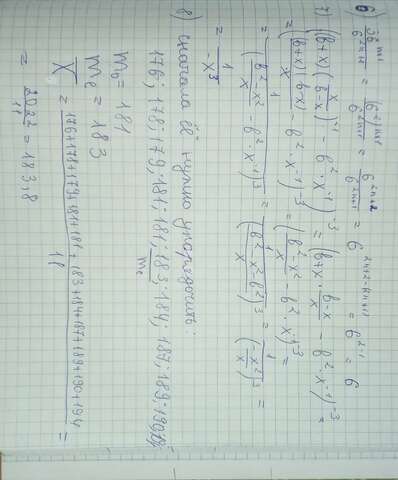 6) 36^(n+1) / 6^(2n+1) = (6²)^(n+1) / 6^(2n+1) = 6^(2n+2) / 6^(2n+1) = 6^(2n+2-2n+1) = 6^(2-1) = 6
7) ((b+x)(x/(b-x))^(-1) - b²·x^(-1))^(-3) = ((b+x·(b-x)/x - b²·x^(-1))^(-3) =
= ((b+x)(b-x)/x - b²·x^(-1))^(-3) = ((b²-x²)/x - b²·x^(-1))^(-3) =
= 1/((b²-x²)/x - b²·x^(-1))^3 = 1/((b²-x²-b²)/x)^3 = 1/(x²/x)^3 =
= 1/-x³
8) сначала её нужно упорядочить:
176; 178; 179; 181; 181; 183; 184; 187; 189; 190;
me
m₀ = 181
me = 183
X̄ = (176+178+179+181+181+183+184+187+189+190+194)/11 =
= 2022/11 = 183,8